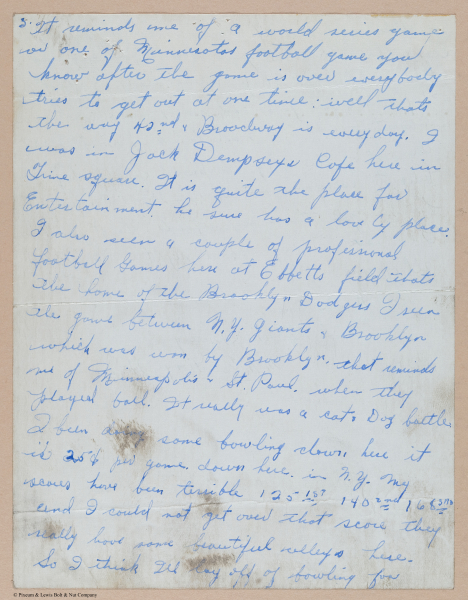 3. It reminds me of a world series game
or one of Minnesotas football game you
know after the game is over everybody
tries to get out at one time. well thats
the way 42nd & Broadway is everyday. I
was in Jack Dempseys Cafe here in
Time square. It is quite the place for
Entertainment he sure has a lovely place.
I also seen a couple of proffisional
football Games here at Ebbetts field thats
the home of the Brooklyn Dodgers I seen
the game between N.Y. Giants & Brooklyn
which was won by Brooklyn. that reminds
me of Minneapolis & St. Paul. when they
played ball. It really was a cat & Dog battle
I been doing some bowling down here it
is 25¢ per game down here in N.Y. My
scores have been terrible 125 1st 140 2nd 168 3rd
and I could not get over that score they
really have some beautiful alleys here.
So I think Ill lay off of bowling for
© Pioneers & Lewis Bolt & Nut Company